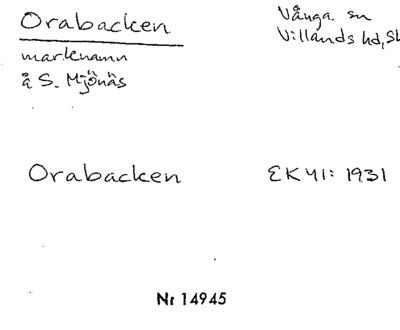 Orabacken
Vånga sn
Villands hd, Sk
marknamn
å S. Mjönäs
Orabacken
EK 41: 1931
Nr 14945